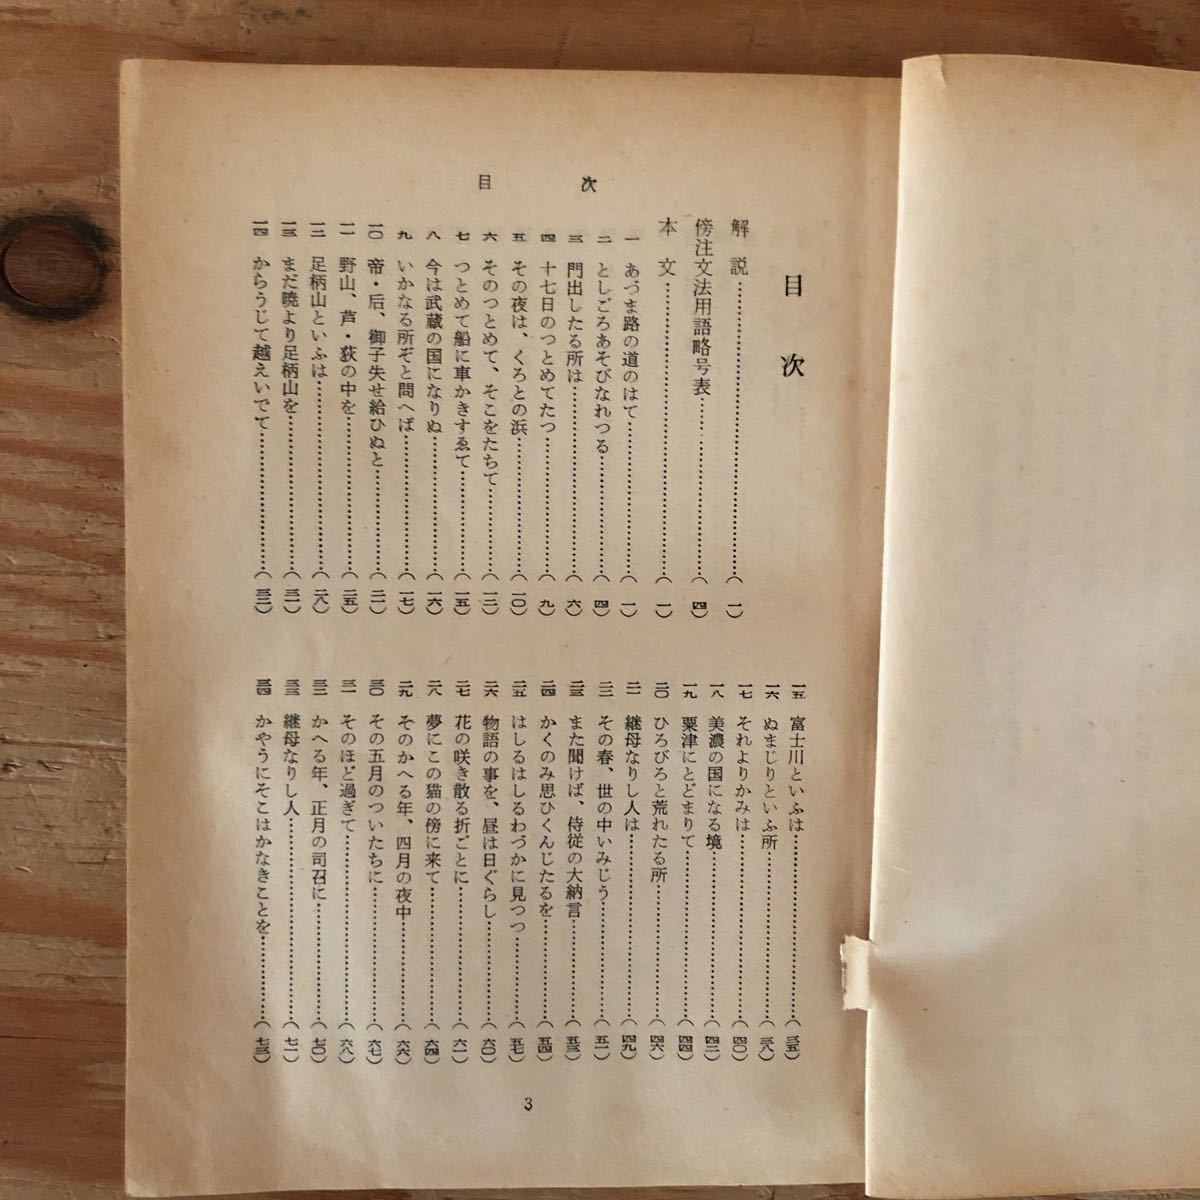 目　次
目　次
解　説……………(一)
傍注文法用語略号表……………(四)
本　文……………(一)
一　あづま路の道のはて……………(一)
二　としごろあそびなれつる……………(四)
三　門出したる所は……………(六)
四　十七日のつとめてたつ……………(九)
五　その夜は、くろとの浜……………(一〇)
六　そのつとめて、そこをたちて……………(一二)
七　つとめて船に車かきすゑて……………(一五)
八　今は武蔵の国になりぬ……………(一六)
九　いかなる所ぞと問へば……………(一七)
一〇　帝・后、御子失せ給ひぬと……………(二一)
一一　野山、芦・荻の中を……………(二五)
一二　足柄山といふは……………(二八)
一三　まだ暁より足柄山を……………(三一)
一四　からうじて越えいでて……………(三二)
一五　富士川といふは……………(三五)
一六　ぬまじりといふ所……………(三八)
一七　それよりかみは……………(四〇)
一八　美濃の国になる境……………(四二)
一九　粟津にとどまりて……………(四四)
二〇　ひろびろと荒れたる所……………(四六)
二一　継母なりし人は……………(四九)
二二　その春、世の中いみじう……………(五一)
二三　また聞けば、侍従の大納言……………(五三)
二四　かくのみ思ひくんじたるを……………(五四)
二五　はしるはしるわづかに見つつ……………(五七)
二六　物語の事を、昼は日ぐらし……………(六〇)
二七　花の咲き散る折ごとに……………(六一)
二八　夢にこの猫の傍に来て……………(六四)
二九　そのかへる年、四月の夜中……………(六六)
三〇　その五月のついたちに……………(六七)
三一　そのほど過ぎて……………(六八)
三二　かへる年、正月の司召に……………(七〇)
三三　継母なりし人……………(七一)
三四　かやうにそこはかなきことを……………(七三)
3